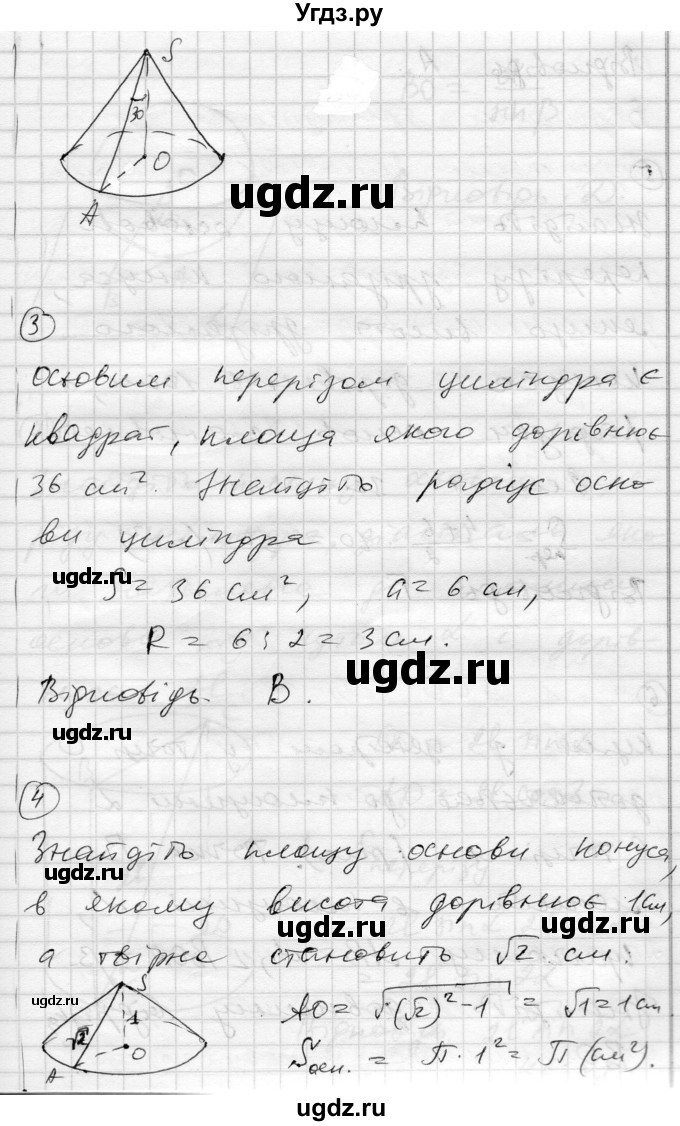 Угдз.ру
S
30
O
A
ugdz.ru
3
осьовим перерізом циліндра є
квадрат, площа якого дорівнює
36 см². Знайдіть радіус осно-
ви циліндра
ugdz.ru
S = 36 см², a = 6 см,
R = 6 : 2 = 3 см.
ugdz.ru
Відповідь. В.
ugdz.ru
4
Знайдіть площу основи конуса,
ugdz.ru
в якому висота дорівнює 1см,
ugdz.ru
а твірна становить √2 см.
ugdz.ru
S
1
√2
O
A
AO = √(√2)² - 1 = √1 = 1см.
Sосн. = П · 1² = П (см²).
ugdz.ru